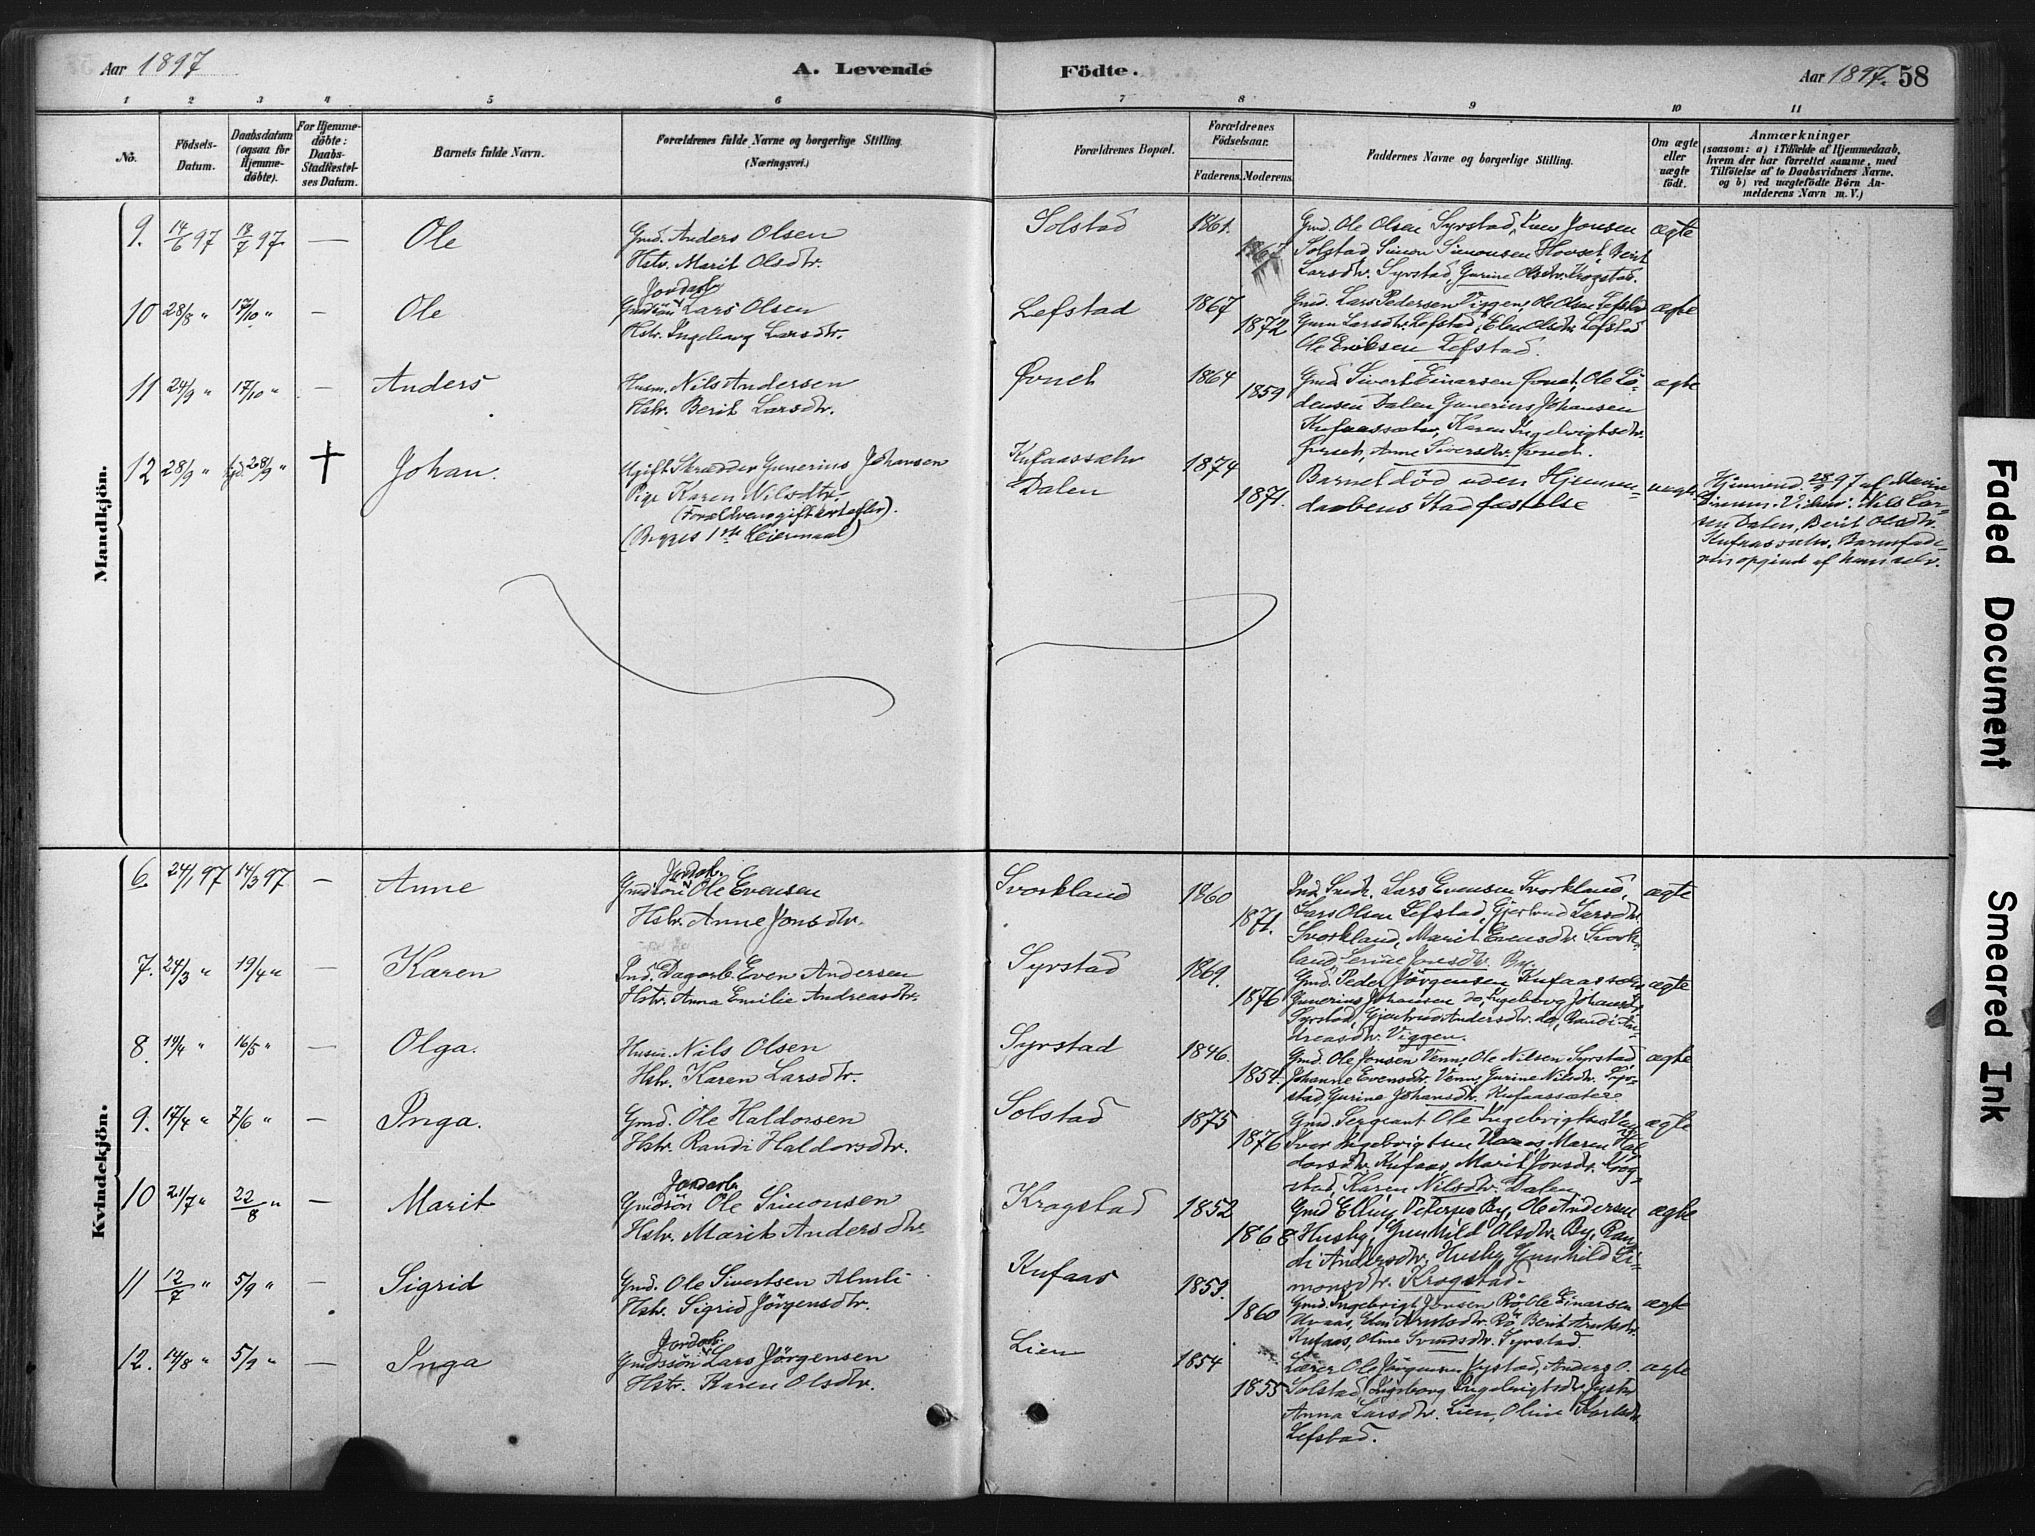 Aar 1897
A. Levende
Födte.
Aar 1897. 58
1 2 3 4 5 6 7 8 9 10 11
No.
Födsels-Datum.
Daabsdatum (ogsaa for Hjemme-döbte).
For Hjemme-döbte: Daabs-Stadfæstel-ses Datum.
Barnets fulde Navn.
Forældrenes fulde Navne og borgerlige Stilling.
(Næringsvei.)
Forældrenes Bopæl.
Forældrenes Födselsaar.
Faderens. Moderens.
Faddernes Navne og borgerlige Stilling.
Om ægte eller uægte födt.
Anmærkninger
(saasom: a) i Tilfælde af Hjemmedaab,
hvem der har forrettet samme, med
Tilföielse af to Daabsvidners Navne.
og b) ved uægtefödte Börn An-
melderens Navn m. V.)
Mandkjön.
9. 14/6 97 18/7 97 — Ole
Gmd. Anders Olsen
Hstr. Marit Olsdtr.
Solstad 1861. 1867
Gmd. Ole Olsen Syrstad, Iver Jonsen
Solstad Simon Simonsen Hovset, Berit
Larsdtr. Syrstad, Gurine Olsdtr. Krogstad.
ægte
10 28/8 " 17/10 " — Ole
Jordarb.
Gmdsön Lars Olsen
Hstr. Ingeborg Larsdtr.
Lefstad 1867 1872
Gmd. Lars Pedersen Viggen, Ole Olsen Lefstad
Guru Larsdtr. Lefstad, Elen Olsdtr. Lefstad
Ole Eriksen Lefstad.
ægte
11 24/9 " 17/10 " — Anders
Husm. Nils Andersen
Hstr. Berit Larsdtr.
Øvnet 1864 1859
Gmd. Sivert Einarsen Øvnet, Ole Lo-
densen Dalen Gunerius Johansen
Kufaassæter, Karen Ingebrigtsdtr.
Anne Siversdtr. Øvnet.
ægte
12 28/9 " hjd. 28/9 " † Johan.
Ugift Skrædder Gunerius Johansen
Pige Karen Nilsdtr.
(Forældrene gift efter).
(Begges 1ste Leiermaal)
Kufaassæter
Dalen
1874 1871.
Barnet död uden Hjemme-
daabens Stadfæstelse
uægte
Hjemmed. 28/9 97 af
Vidner: Nils Lar-
sen Dalen, Berit Olsdtr.
Kufaassæter. Barnefade-
ren opgivet af ham selv.
Kvindekjön.
6. 24/1 97 14/3 97 — Anne
Jordarb.
Gmdsön Ole Evensen
Hstr. Anne Jonsdtr.
Svorkland 1860 1871.
Ind. Lars Evensen Svorkland,
Lars Olsen Lefstad, Gjertrud Larsdtr.
Svorkland, Marit Evensdtr. Svork-
land, Serine Jonsdtr. By.
ægte
7. 24/3 " 19/4 " — Karen
Ind. Dagarb. Even Andersen
Hstr. Anna Emilie Andreasdtr.
Syrstad 1869. 1876
Gmd. Peder Jörgensen Kufaassæter
Gunerius Johansen do, Ingeborg Johansdtr.
Syrstad, Gjertrud Andersdtr. do, Randi An-
dreasdtr. Viggen.
ægte
8. 14/4 " 16/5 " — Olga.
Husm. Nils Olsen
Hstr. Karen Larsdtr.
Syrstad 1846. 1854.
Gmd. Ole Jonsen Venn, Ole Nilsen Syrstad
Johanne Evensdtr. Venn, Gurine Nilsdtr. Syr-
stad Gurine Johansdtr. Kufaassætere
ægte
9. 17/4 " 7/6 " — Inga.
Gmd. Ole Haldorsen
Hstr. Randi Haldorsdtr.
Solstad 1875 1876
Gmd. Sergeant Ole Ingebrigtsen
Iver Ingebrigtsen Maren Hal-
dorsdtr. Kufaas, Marit Jonsdtr. Krog-
stad, Karen Nilsdtr. Dalen
ægte
10 21/7 " 22/8 " — Marit
Jordarb.
Gmdsön Ole Simonsen
Hstr. Marit Andersdtr.
Krogstad 1852 1868
Gmd. Elling Petersen By, Ole Andersen
Husby, Gunhild Olsdtr. By, Ran-
di Andersdtr. Husby Gunhild Si-
monsdtr. Krogstad.
ægte
11 12/7 " 5/9 " — Sigrid
Gmd. Ole Sivertsen Almli
Hstr. Sigrid Jörgensdtr.
Kufaas 1853. 1860
Gmd. Ingebrigt Jonsen Rö Ole Einarsen
Elen Arntsdtr. Rö, Berit Arntsdtr.
Kufaas, Oline Svendsdtr. Syrstad.
ægte
12. 14/8 " 5/9 " — Inga
Jordarb.
Gmdssön Lars Jörgensen
Hstr. Karen Olsdtr.
Lien 1854 1855
Lærer Ole Jörgensen Syrstad, Anders O.
Solstad, Ingeborg Ingebrigtsdtr.
Anna Larsdtr. Lien, Oline Karlsdtr.
Lefstad.
ægte
Faded Document
Smeared Ink